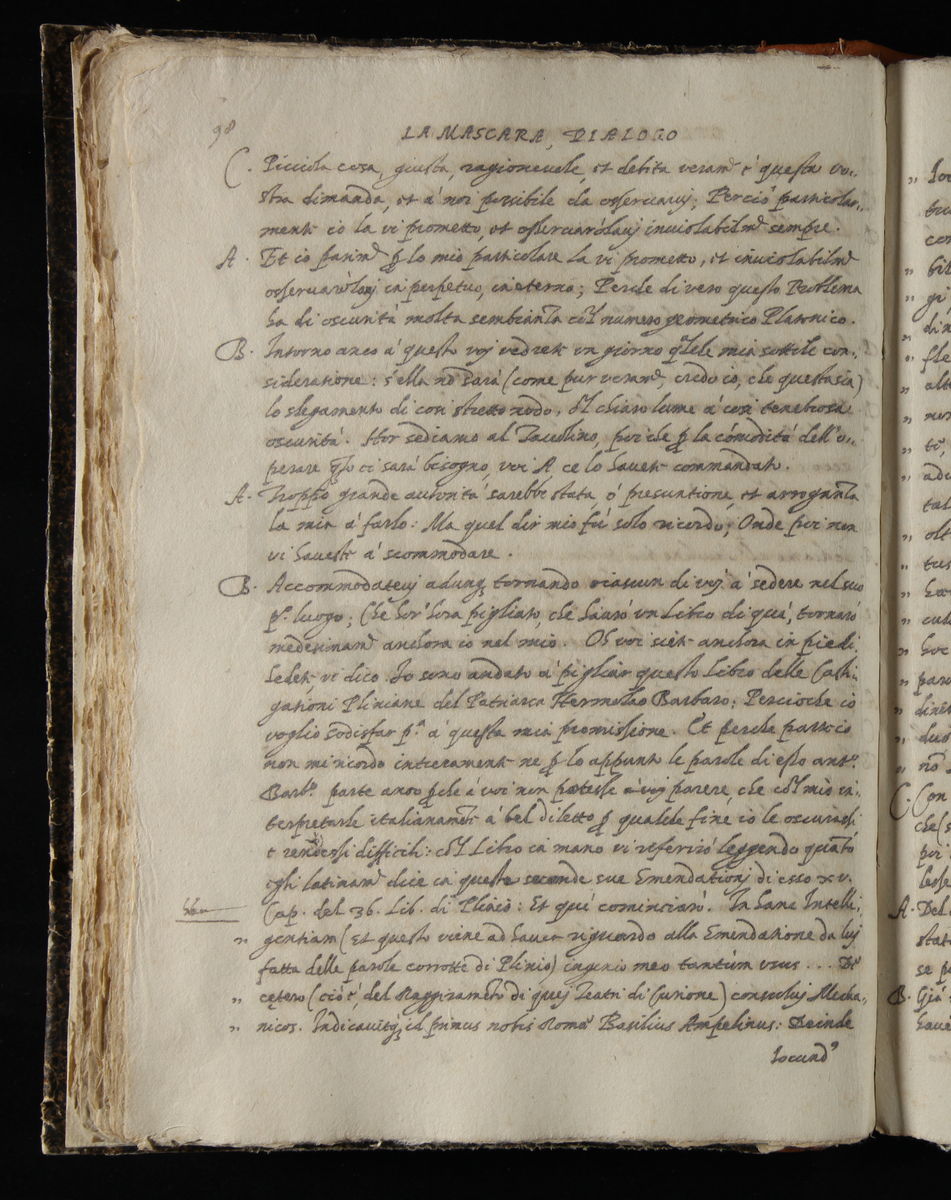 98
LA MASCARA, DIALOGO
C. Picciola cosa, giusta, ragionevole, et debita veram.e è questa vo-
stra dimanda, et à noi possibile da osservarvj; Perciò particolar-
mente io la vi prometto, et osservaròlavj inviolabilm.e sempre.
A. Et io parim.e ꝑ lo mio particolare la vi prometto, et inviolabilm.e
osservaròlavj in perpetuo, in eterno; Perche di vero questo Problema
ha di oscurità molta sembianza co'l numero geometrico Platonico.
B. Intorno anco à questo voj vedrete un giorno q̃lche mia sottile con-
sideratione: s'ella nõ sarà (come pur veram.e, credo io, che questa sia)
lo slegamento di così stretto nodo, e'l chiaro lume à così tenebrosa
oscurità. Hor sediamo al Tavolino, poi che ꝑ la cõmodità dell'o-
perare q̃to ci sarà bisogno, voi A ce lo havete commandato.
A. Troppo grande autorità sarebbe stata ò presuntione, et arroganza
la mia à farlo: Ma quel dir mio fù solo ricordo; Onde poi non
vi haveste à scommodare.
B. Accommodatevj adunq; tornando ciascun di voj à sedere nel suo
p.o luogo; Che hor'hora pigliato, che havrò un Libro di quà, tornarò
medesimam.e anchora io nel mio. Oh voi siete anchora in piedi.
Sedete vi dico. Io sono andato à pigliar questo Libro delle Casti-
gationi Pliniane del Patriarca Hermolao Barbaro; Percioche io
voglio sodisfar p.a à questa mia promissione. Et perche parte io
non mi ricordo intieramente ne ꝑ lo appunto le parole di esso ant.o
Barb.o parte anco ꝑche à voi non potesse à voj parere, che co'l mio in-
terpretarle italianamẽte à bel diletto ꝑ qualche fine io le oscurassi
e rendessi difficili: co'l Libro in mano vi referirò leggendo quãto
egli latinam.e dice in queste seconde sue Emendationj di esso xv.
Cap. del 36. Lib. di Plinio: Et quì cominciarò. In hanc Intelli-
" gentiam (Et questo viene ad haver riguardo alla Emendatione da luj
fatta delle parole corrotte di Plinio) ingenio meo tantùm usus ... De
" cętero (ciò è, del Raggiramẽto di quej Teatri di Curione) consuluj Mecha-
" nicos. Indicavitq; id primus nobis Romę Basilius Ampelinus: Deinde
Iocund9